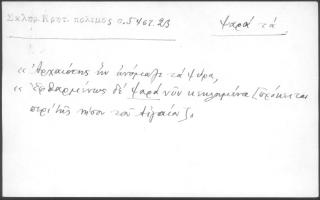 Σκλάβ. Κρητ. πόλεμος σ. 5 στ. 2β
Ψαρά τά
« Ἀρχαιότης ἥν ἀνόμαζε τά Ψύρα,
« Ἐφθαρμένως δέ Ψαρά νῦν κεκλημένα [πρόκειται
περί τῆς νήσου τοῦ Αἰγαίου].